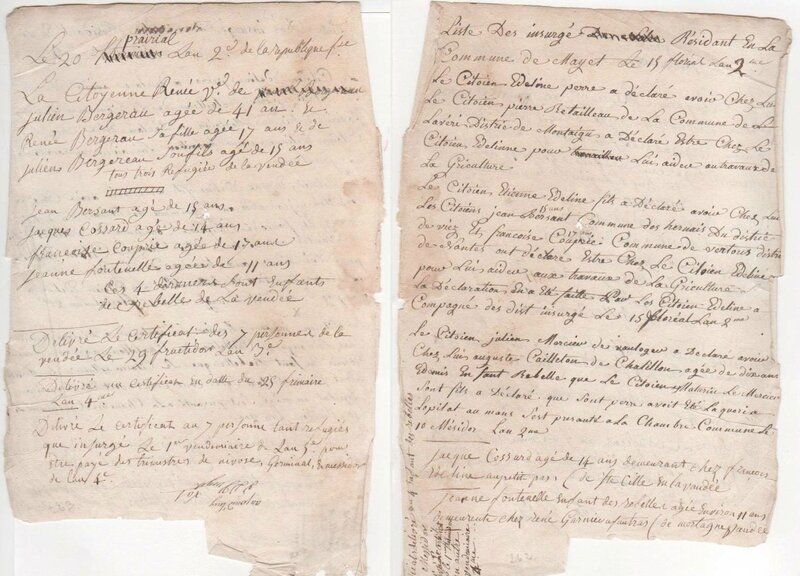 prairial
Le 20 Lan 2e de la republique fse
La Citoyenne Renée Ve de
julien Bergerau agée de 41 an. &
Renée Bergerau Sa fille agée 17 ans & de
juliens Bergereau Son fils agé de 15 ans
tous trois Refugiée de la vendée
jean Bersant agé de 15 ans.
jacques Cossard agé de 14 ans
francoise Couprie agée de 17 ans
jeanne fontenelle agéée de 11 ans
Ces 4 derniers Sont Enfants
de Rebelle de La vendée
Délivré Le Certificat des 7 personnes de la
vendée Le 29 fructidor Lan 3e.
Délivré un Certificat en datte du 25 frimaire
Lan 4me
Délivré Le certificat au 7 personne tant refugiés
que insurgé Le 1er vendemiaire de Lan 5e. pour
être payé des trimestres de nivose, Germinal, & messidor
de Lan 4e.
Liste Des insurgé Résidant En La
Commune de Mayet Le 15 floreal Lan 2me
Le Citoien Edeline perre a déclaré avoir Chez Lui
Le Citoien pierre Retailleau de La Commune de La
Laverie District de Montaigu a Déclaré Estre Chez Le
Citoien Edelinne pour Lui aider au travaux de
La Griculture
Le Citoien Etienne Edeline fils a Déclaré avoir Chez Lui
15 ans
Les Citoiens jean Borsant Commune des hernais Du District
17 ans
de viez & francoise Couprie Commune de vertous district
de Nantes ont déclaré Estre Chez Le Citoien Edeline
pour Luis aider aux travaux de La Griculture
La Déclaration En a été faitte Par Les Citoien Edeline a
Compagné des dist insurgé Le 15 floréal Lan 2me
Le Citoien julien Mercier de vauloger a Déclaré avoir
Chez Luis auguste Cailleton de Chatillon agée de dix ans
Edemis En fant Rebelle que Le Citoien Maturin Le Mercier
Sont fils a Déclaré que Sont perre avoit Eté La querir a
Lopital au mans Sest presanté a La Chambre Commune Le
10 Mésidor Lan 2me
Jacque Cossard agé de 14 ans demeurant chez francois
Edeline au petit pas ( de Ste Cille En lavendée
Jeanne fontenelle Enfant des rebelle agée Environ 11 ans
demeurente chez René Garnier ( de mortagne vandée